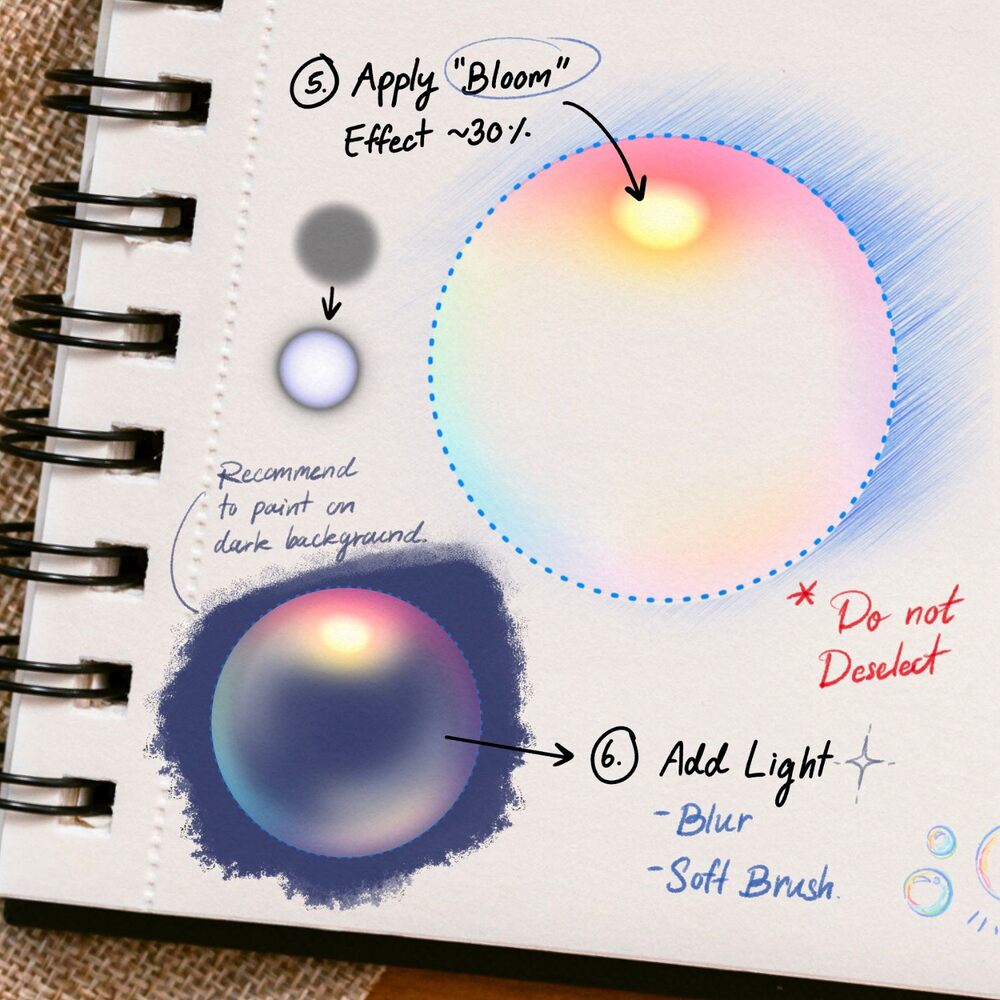 5. Apply "Bloom"
Effect ~30%
Recommend
to paint on
dark background.
* Do not
Deselect
6. Add Light
- Blur
- Soft Brush.